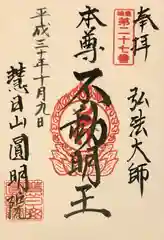 奉拝
第二十七番
弘法大師
本尊
不動明王
平成三十年十月九日
慧日山圓明院